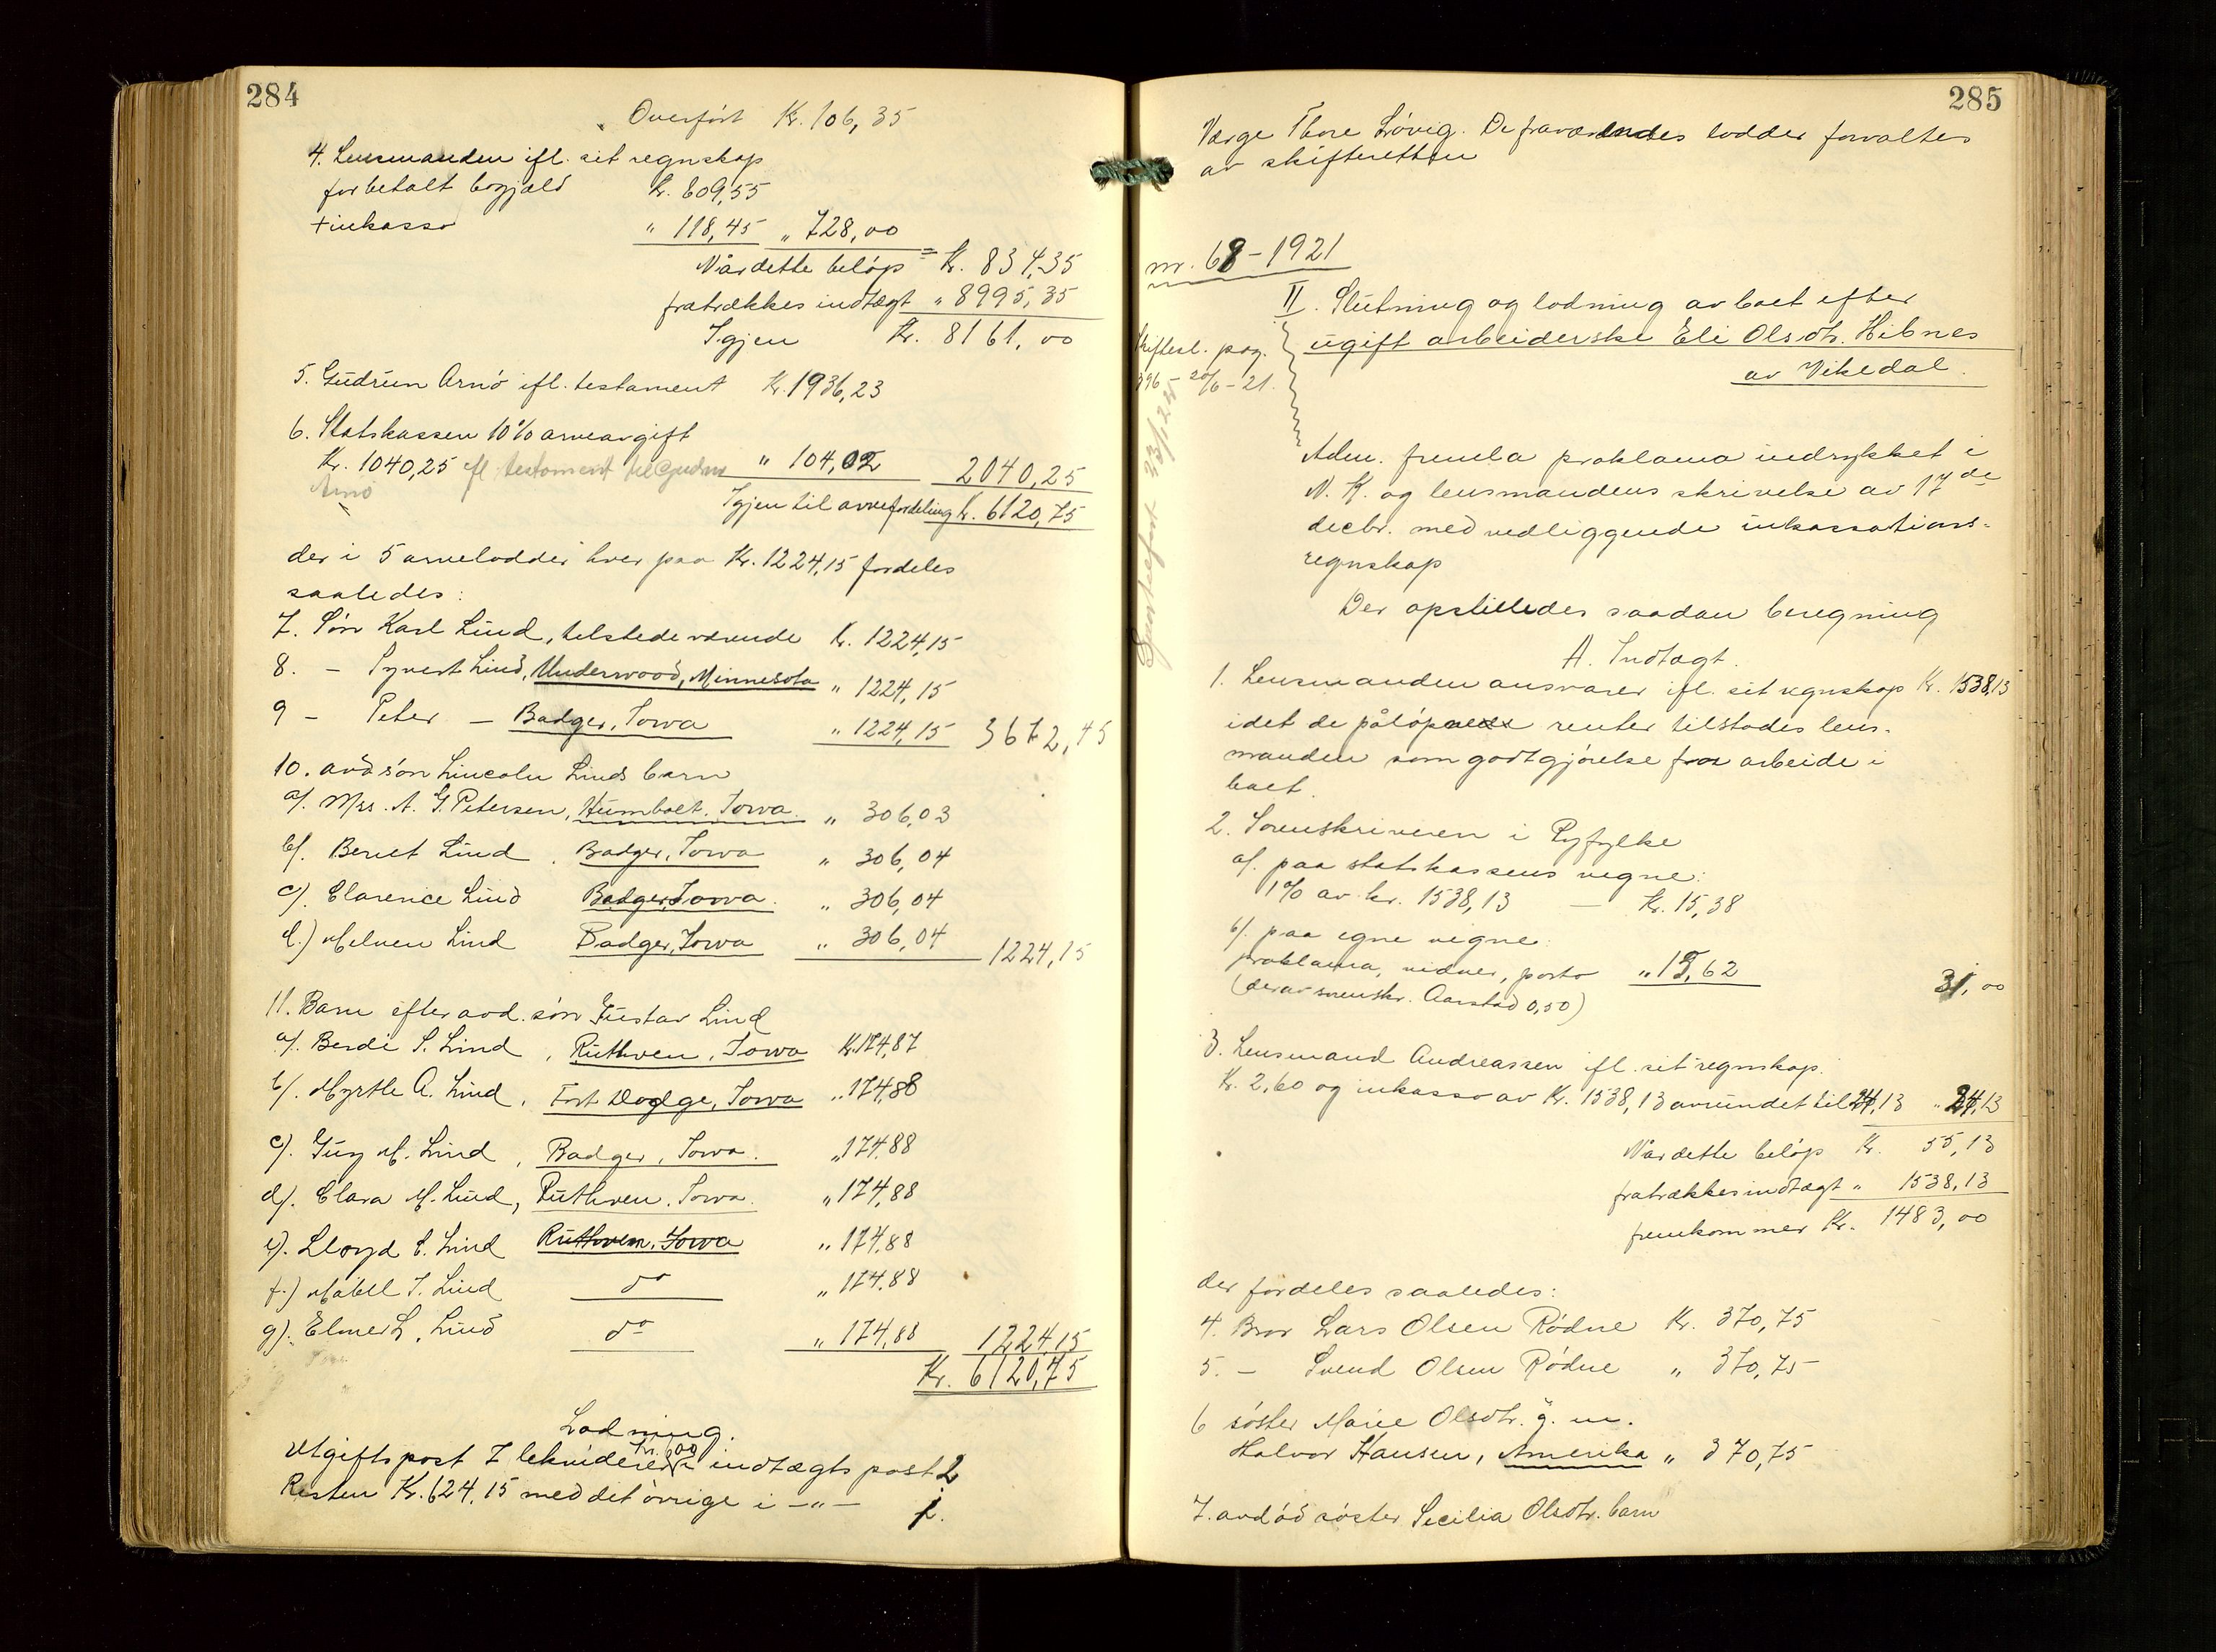 284
Overført Kr. 106,35
4. Lensmanden ifl. sit regnskap
for betalt bogjæld Kr. 609,55
+ inkasso " 118,45 " 728,00
Når dette beløp = Kr. 834,35
fratrækkes indtægt " 8995,35
Igjen Kr. 8161,00
5. Gudrun Arnø ifl. testament Kr. 1936,23
6. Statskassen 10% arveavgift
Kr. 1040,25 ifl testament til Gudrun " 104,02 2040,25
Arnø
Igjen til arvefordeling kr. 6120,75
der i 5 arvelodder hver paa Kr. 1224,15 fordeles
saaledes:
7. Søn Karl Lind, tilstedeværende Kr. 1224,15
8. – Syvert Lind, Underwood, Minnesota " 1224,15
9 – Peter – Badger, Iowa " 1224,15 3672,45
10. avd søn Lincoln Linds barn
a/. Mrs. A. G. Petersen, Humbolt. Iowa. " 306,03
b/. Bernet Lind, Badger, Iowa " 306,04
c/. Clarence Lind Badger, Iowa. " 306,04
d.) Melven Lind Badger, Iowa " 306,04 1224,15
11. Barn efter avd. søn Gustav Lind
a/. Berdi S. Lind, Ruthven, Iowa Kr. 174,87
b/. Myrtle A. Lind, Fort Dodge, Iowa " 174,88
c/. Guy M. Lind, Badger, Iowa. " 174,88
d/. Clara M. Lind, Ruthven, Iowa. " 174,88
e/. Lloyd C. Lind Ruthven, Iowa " 174,88
f.) Mabell I. Lind do " 174,88
g). Elmer L. Lind do " 174,88 1224,15
Kr. 6120,75
Lodning.
Utgiftspost 7 likvideres i indtægts post 2
Resten Kr. 624,15 med det øvrige i –"– 1.
285
Værge Thore Løvig. De fraværendes lodder forvaltes
av skifteretten
nr. 68 – 1921
II. Slutning og lodning av boet efter
Skiftesl. pag. ugift arbeiderske Eli Olsdtr. Hibnes
396 – 20/6 – 21. av Vikedal.
23/1 24
Adm. fremla proklama indrykket i
N. K. og lensmandens skrivelse av 17de
decbr. med vedliggende inkassations-
regnskap
Der opstilledes saadan beregning
A. Indtægt.
1. Lensmanden ansvarer ifl. sit regnskap Kr. 1538,13
idet de påløpne renter tilstodes lens-
manden som godtgjørelse for arbeide i
boet.
2. Sorenskriveren i Ryfylke
a/. paa statskassens vegne:
1% av kr. 1538,13 – Kr. 15,38
b/. paa egne vegne:
proklama, vidner, porto " 15,62 31,00
(derav sorenskr. Aarstad 0,50)
3. Lensmand Andreassen ifl. sit regnskap.
Kr. 2,60 og inkasso av Kr. 1538,13 avrundet til 24,13 " 24,13
Når dette beløp Kr. 55,13
fratrækkes indtægt " 1538,13
fremkommer Kr. 1483,00
der fordeles saaledes:
4. Bror Lars Olsen Rødne Kr. 370,75
5. – Svend Olsen Rødne " 370,75
6 søster Marie Olsdtr. g. m.
Halvor Hansen, Amerika " 370,75
7. avdød søster Secilia Olsdtr. barn